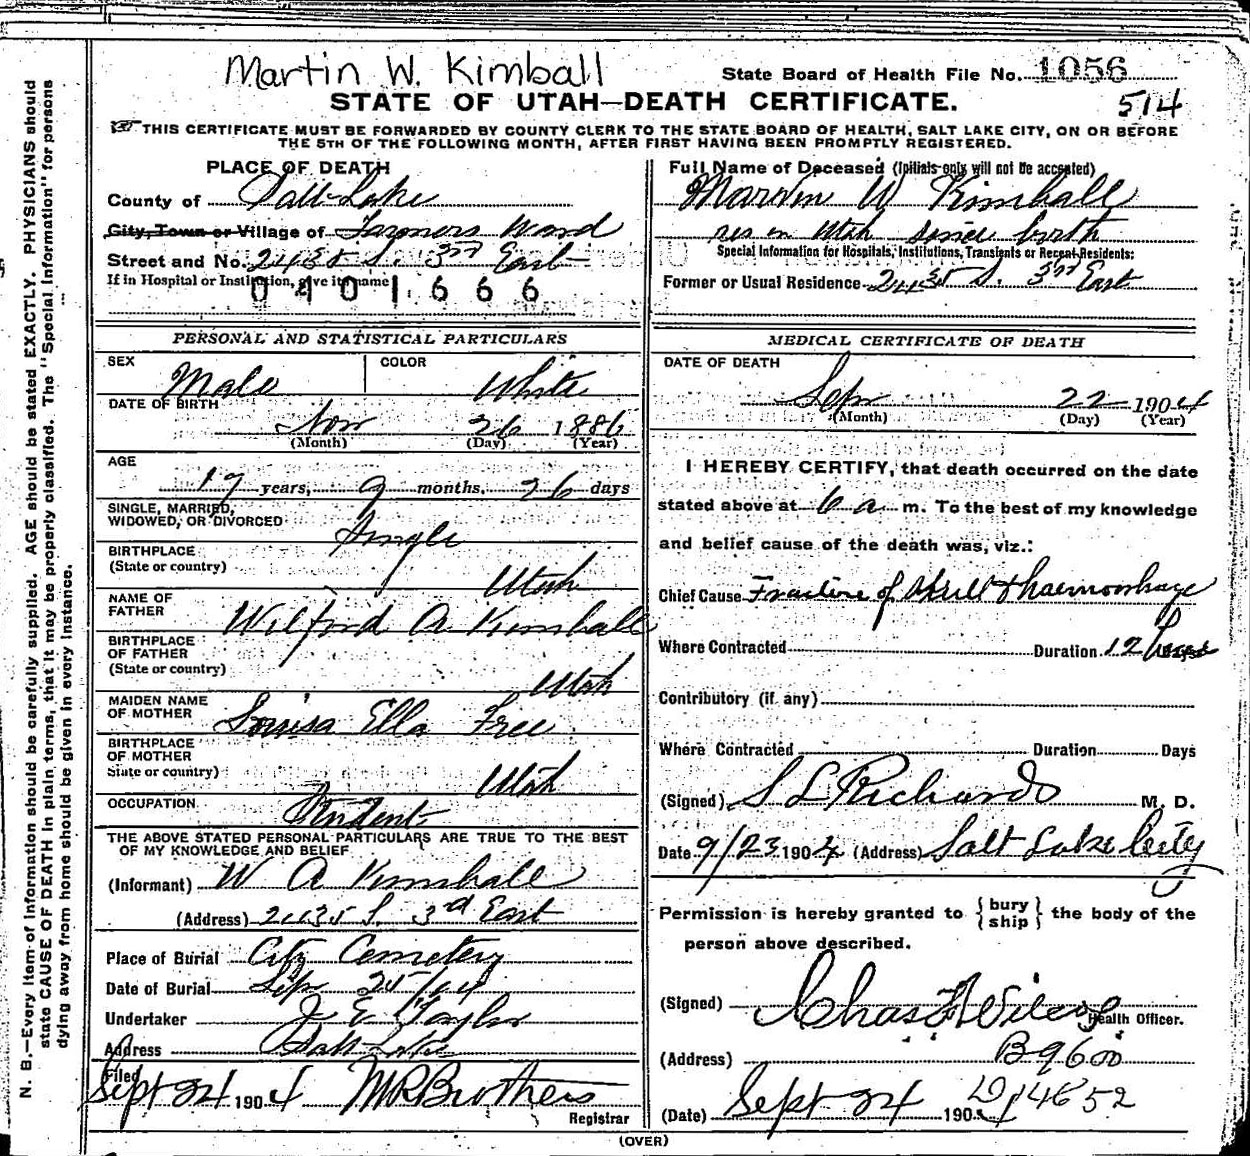 Martin W. Kimball
State Board of Health File No. 1056
STATE OF UTAH—DEATH CERTIFICATE.
514
THIS CERTIFICATE MUST BE FORWARDED BY COUNTY CLERK TO THE STATE BOARD OF HEALTH, SALT LAKE CITY, ON OR BEFORE
THE 5TH OF THE FOLLOWING MONTH, AFTER FIRST HAVING BEEN PROMPTLY REGISTERED.
PLACE OF DEATH
County of Salt Lake
City, Town or Village of Farmers Ward
Street and No. 2435 S. 3rd East
If in Hospital or Institution, give its name
0401666
PERSONAL AND STATISTICAL PARTICULARS
SEX Male
COLOR White
DATE OF BIRTH
Nov 26 1886
(Month) (Day) (Year)
AGE
17 years, 9 months, 26 days
SINGLE, MARRIED,
WIDOWED, OR DIVORCED
Single
BIRTHPLACE
(State or country)
Utah
NAME OF
FATHER
Wilford A Kimball
BIRTHPLACE
OF FATHER
(State or country)
Utah
MAIDEN NAME
OF MOTHER
Louisa Ella Free
BIRTHPLACE
OF MOTHER
State or country)
Utah
OCCUPATION
Student
THE ABOVE STATED PERSONAL PARTICULARS ARE TRUE TO THE BEST
OF MY KNOWLEDGE AND BELIEF
(Informant) W A Kimball
(Address) 2435 S. 3rd East
Place of Burial City Cemetery
Date of Burial Sep 25/04
Undertaker J E Taylor
Address Salt Lake
Filed
Sept 24 1904 M R Brothers
Registrar
Full Name of Deceased (Initials only will not be accepted)
Marvin W Kimball
res in Utah since birth
Special Information for Hospitals, Institutions, Transients or Recent Residents:
Former or Usual Residence 2435 S. 3rd East
MEDICAL CERTIFICATE OF DEATH
DATE OF DEATH
Sep 22 1904
(Month) (Day) (Year)
I HEREBY CERTIFY, that death occurred on the date
stated above at 6 a m. To the best of my knowledge
and belief cause of the death was, viz.:
Chief Cause Fracture of Skull & haemorrhage
Where Contracted Duration 12 hours
Contributory (if any)
Where Contracted Duration Days
(Signed) S L Richards M. D.
Date 9/23 1904 (Address) Salt Lake City
Permission is hereby granted to { bury ship } the body of the
person above described.
(Signed) Chas F Wilcox
Health Officer.
(Address) B9600
(Date) Sept 24 190 D14652
(OVER)
N. B.—Every item of information should be carefully supplied. AGE should be stated EXACTLY. PHYSICIANS should
state CAUSE OF DEATH in plain terms, that it may be properly classified. The "Special Information" for persons
dying away from home should be given in every instance.